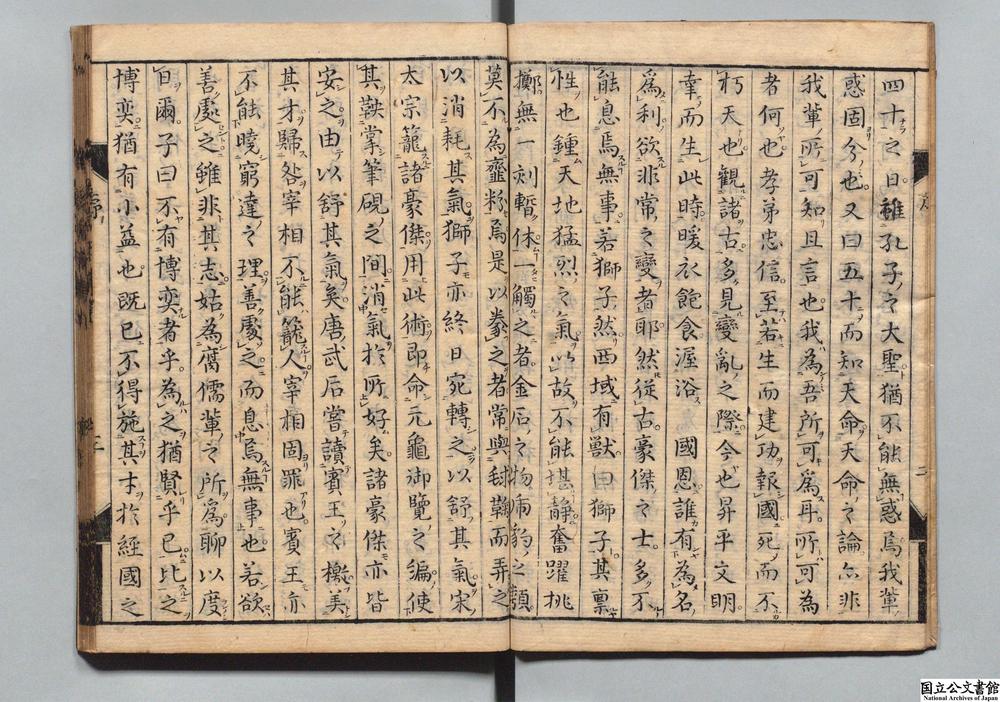 四十之日雖孔子之大聖猶不能無惑焉我輩
惑固分也又曰五十而知天命天命之論亦非
我輩所可知且言也我為吾所可為耳所可為
者何也孝弟忠信至若生而建功報國死而不
朽天也観諸古多見變亂之際今也昇平文明
幸而生此時暖衣飽食渥浴國恩誰有為名
為利欲非常之變者耶然從古豪傑之士多不
能息焉無事若獅子然西域有獣曰獅子其禀
性也鍾天地猛烈之氣以故不能堪静奮躍挑
擲無一刻暫休一觸之者金石之物兕豹之類
莫不為虀粉焉是以豢之者常與毬鞠而弄之
以消耗其氣獅子亦終日宛轉之以舒其氣宋
太宗籠諸豪傑用此術即命元龜御覽之編使
其鞅掌筆硯之間消氣於所好矣諸豪傑亦皆
安之由以舒其氣矣唐武后嘗讀賓王之檄美
其才歸咎宰相不能籠人宰相固罪也賓王亦
不能曉窮達之理善處之而息焉無事也若欲
善處之雖非其志姑為腐儒輩之所為聊以度
日爾子曰不有博奕者乎為之猶賢乎已比之
博奕猶有小益也既已不得施其才於經國之
序
二
国立公文書館
National Archives of Japan